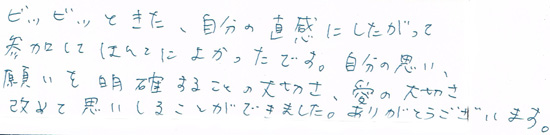 ビッビッときた、自分の直感にしたがって
参加してほんとによかったです。自分の思い、
願いを明確することの大切さ、愛の大切さ
改めて思いしることができました。ありがとうございます。